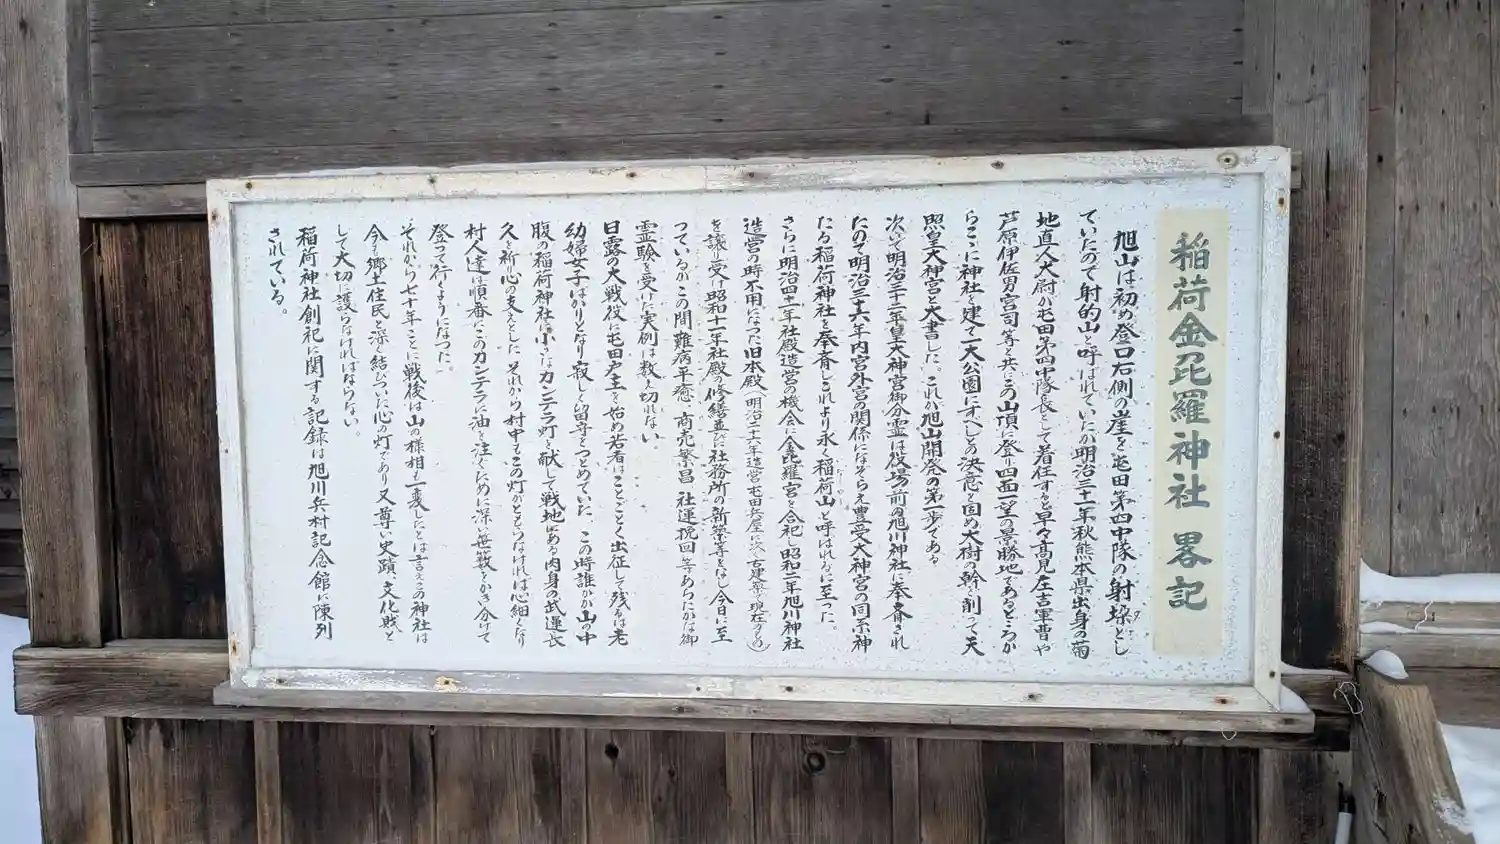 稲荷金毘羅神社 畧記
旭山は初め登口右側の崖を屯田第四中隊の射垜とし
ていたので射的山と呼ばれていたが明治三十一年秋熊本県出身の菊
地直人大尉が屯田第四中隊長として着任すると早々高見左吉軍曹や
芦原伊佐男宮司等と共にこの山頂に登り四面一望の景勝地であるところか
らここに神社を建て一大公園にすべしとの決意を固め大樹の幹を削って天
照皇大神宮と大書した。これが旭山開発の第一歩である
次いで明治三十二年皇大神宮御分霊は役場前の旭川神社に奉斎され
たので明治三十六年内宮外宮の関係になぞらえ豊受大神宮の同系神
たる稲荷神社を奉斎しこれより永く稲荷山と呼ばれるに至った。
さらに明治四十二年社殿造営の機会に金毘羅宮を合祀し昭和二年旭川神社
造営の時不用になった旧本殿(明治二十六年造営屯田兵屋に次ぐ古建築で現在のもの)
を譲り受け昭和十一年社殿の修繕並びに社務所の新築等をなし今日に至
っているがこの間難病平癒 商売繁昌 社運挽回等あらたかな御
霊験を受けた実例は数え切れない
日露の大戦役に屯田戸主を始め若者はことごとく出征して残るは老
幼婦女子ばかりとなり寂しく留守をつとめていた。この時誰かが山の中
腹の稲荷神社に小さなカンテラ灯を献じて戦地にある肉身の武運長
久を祈り心の支えとした それから村中でこの灯がともらなければ心細くなり
村人達は順番にこのカンテラに油を注ぐために深い笹薮をかき分けて
登って行くようになった。
それから七十年ことに戦後は山の様相も一変したとは言えこの神社は
今も郷土住民と深く結びついた心の灯であり又尊い史蹟、文化財と
して大切に護らなければならない。
稲荷神社創祀に関する記録は旭川兵村記念館に陳列
されている。